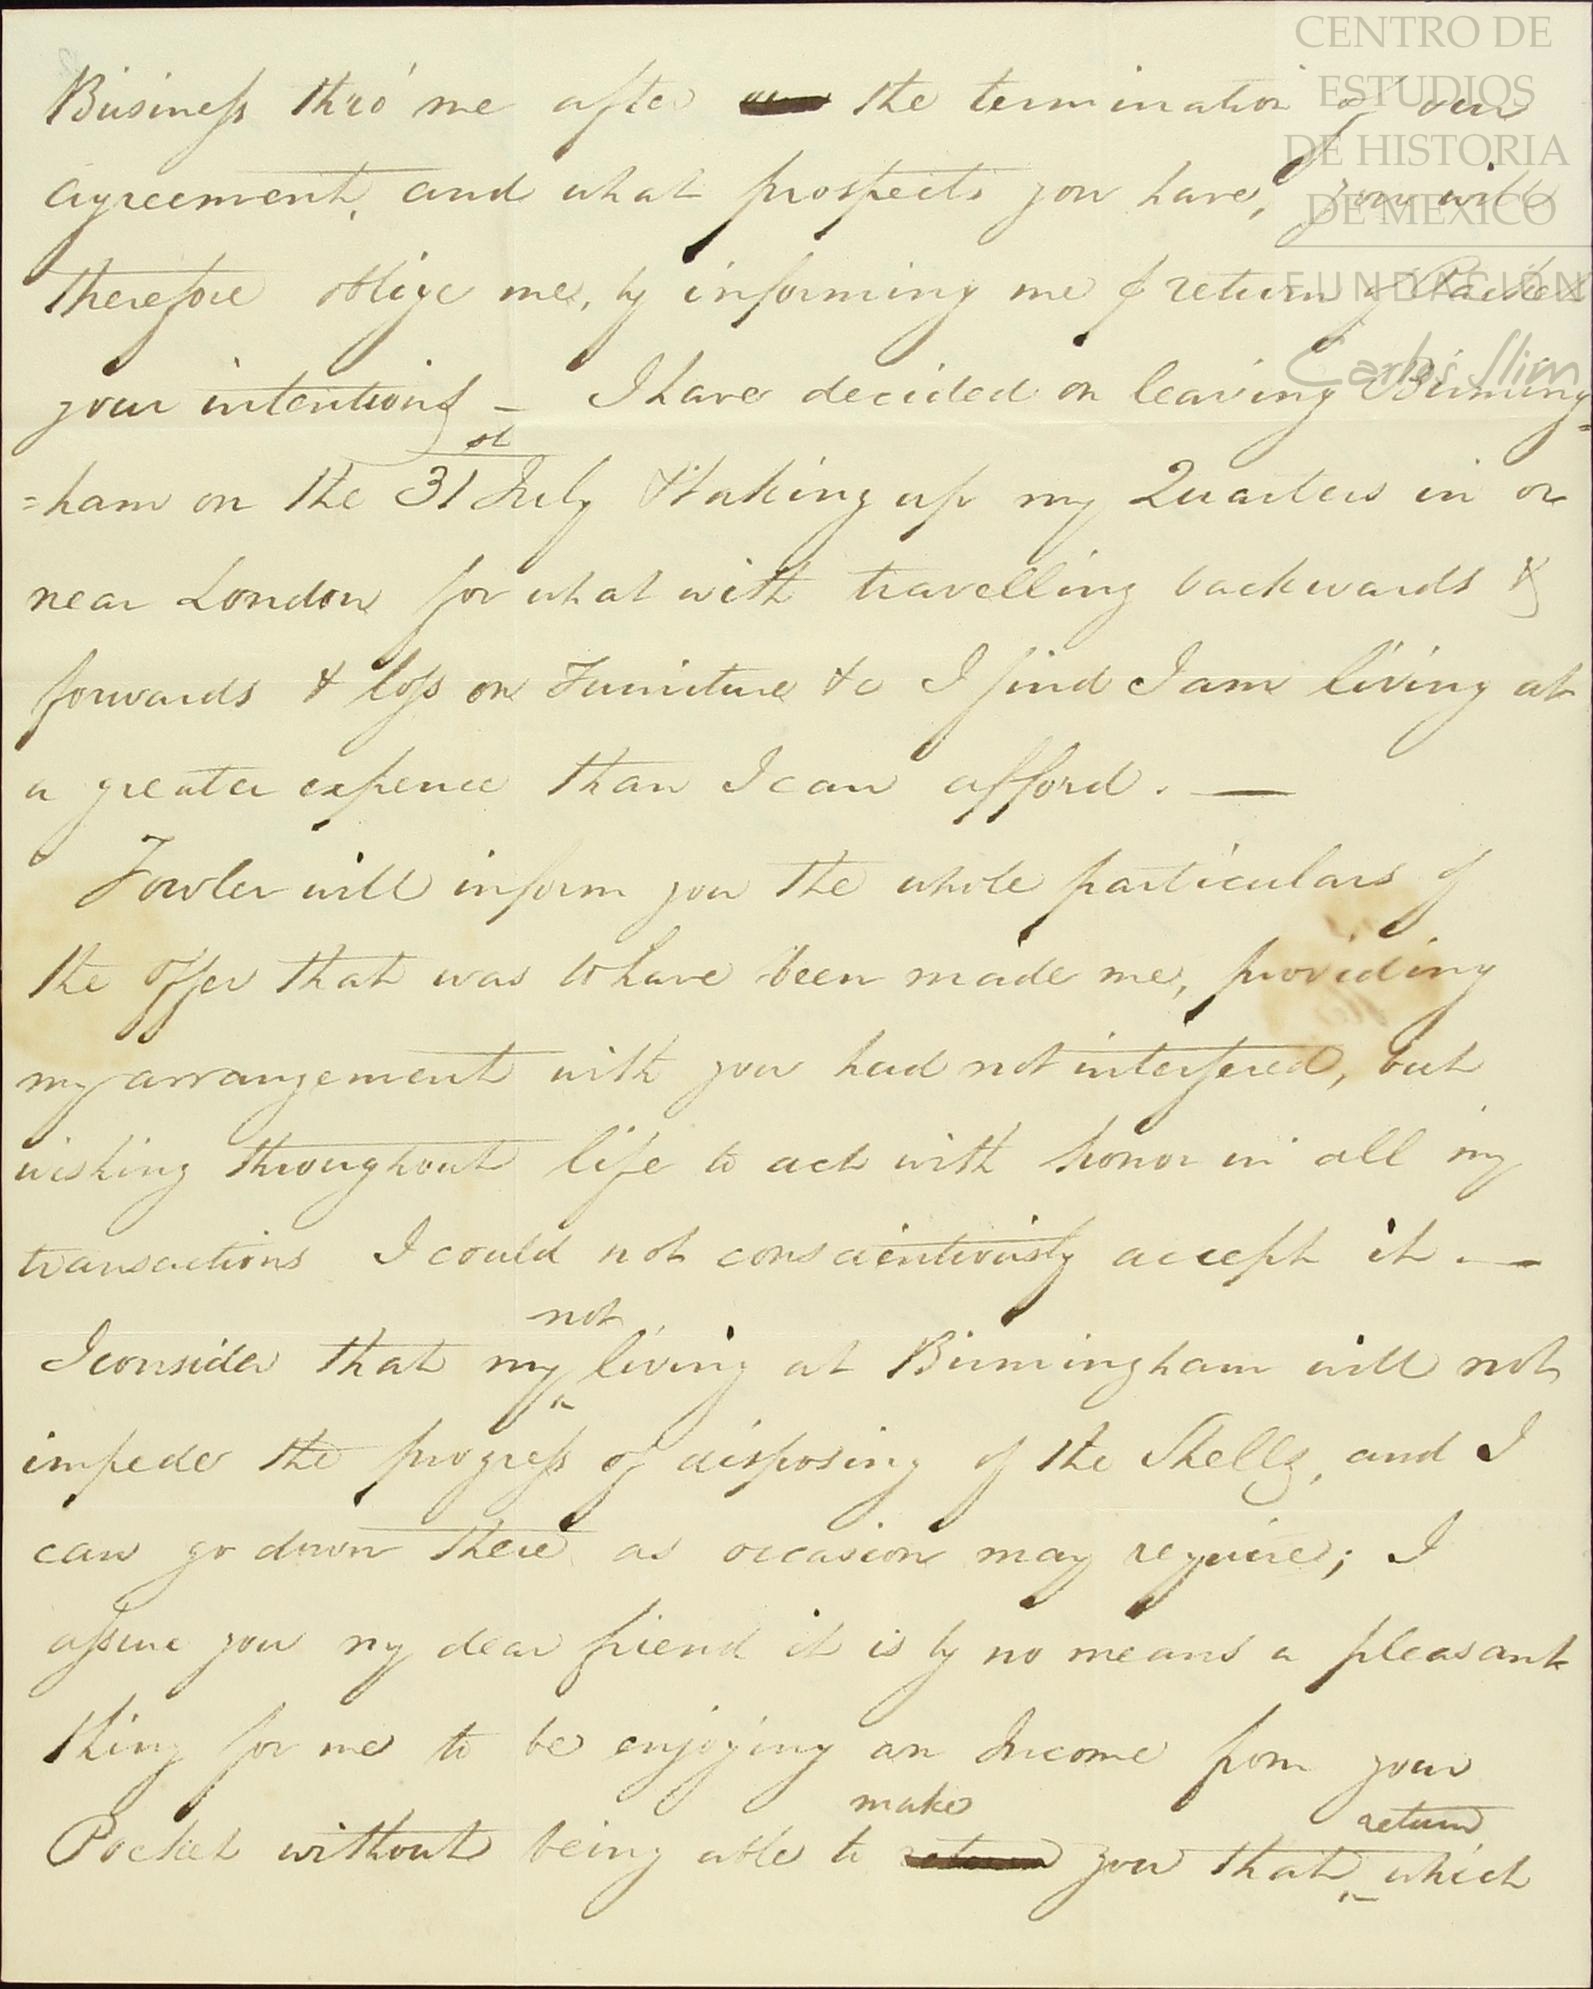 CENTRO DE
ESTUDIOS
DE HISTORIA
DE MEXICO
FUNDACIÓN
Carlos Slim
Business thro' me after the termination of our
agreement, and what prospects you have, you will
therefore oblige me, by informing me p return of Packet
your intentions – I have decided on leaving Birming=
=ham on the 31st July & taking up my Quarters in or
near London for what with travelling backwards &
forwards & loss on Furniture &c I find I am living at
a greater expence than I can afford. —
Fowler will inform you the whole particulars of
the offer that was to have been made me, providing
my arrangement with you had not interfered, but
wishing throughout life to act with honor in all my
transactions I could not conscientiously accept it. —
I consider that my not living at Birmingham will not
impede the progress of disposing of the Shells, and I
can go down there as occasion may require; I
assure you my dear friend it is by no means a pleasant
thing for me to be enjoying an Income from your
Pocket without being able to make you that return which